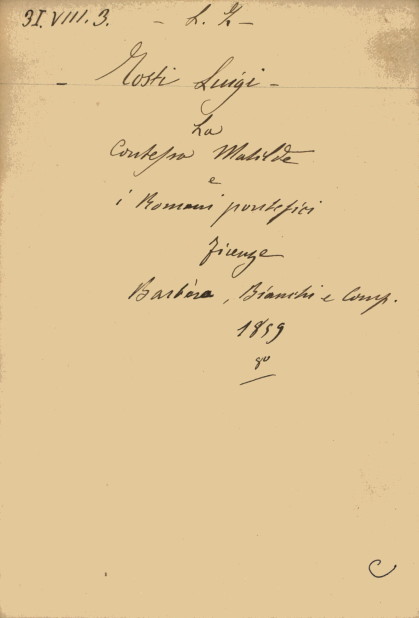 31.VIII.3. - L. Z -
- Tosti Luigi -
La
Contessa Matilde
e
i Romani pontefici
Firenze
Barbèra, Bianchi e Comp.
1859
8º
C